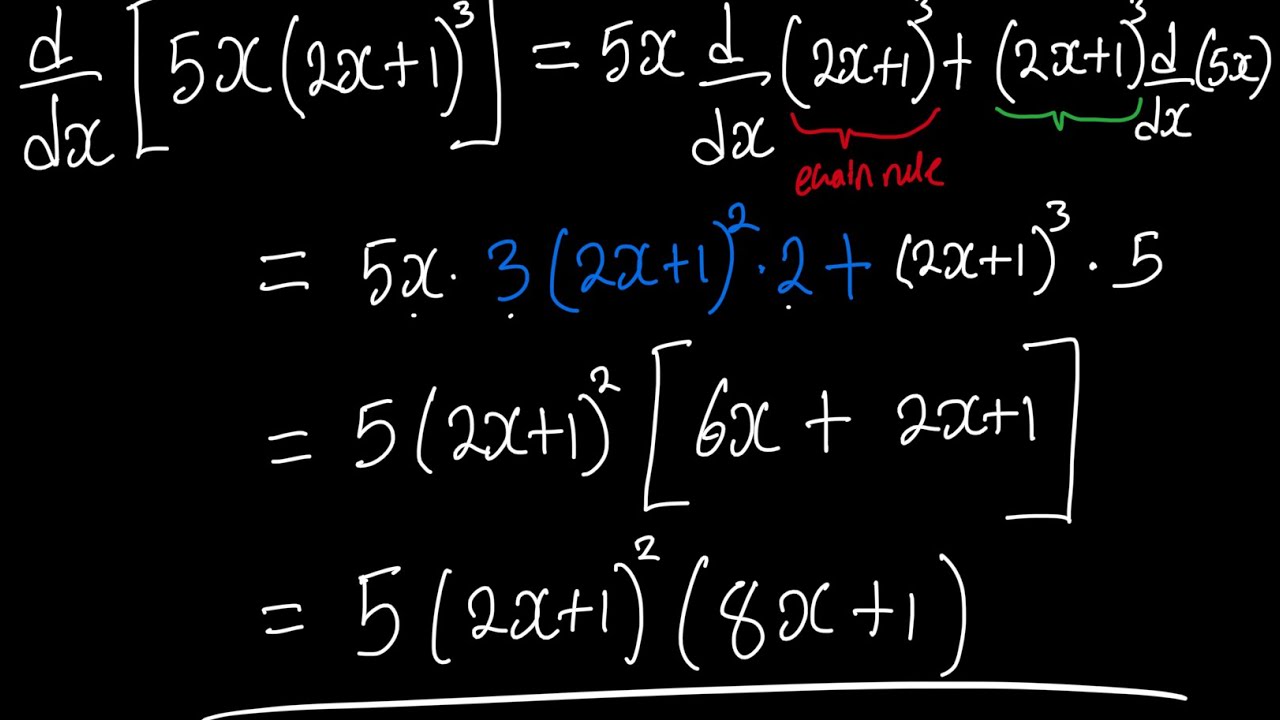 d/dx [5x(2x+1)³] = 5x d/dx (2x+1)³ + (2x+1)³ d/dx (5x)
chain rule
= 5x · 3(2x+1)² · 2 + (2x+1)³ · 5
= 5(2x+1)² [6x + 2x+1]
= 5(2x+1)² (8x+1)